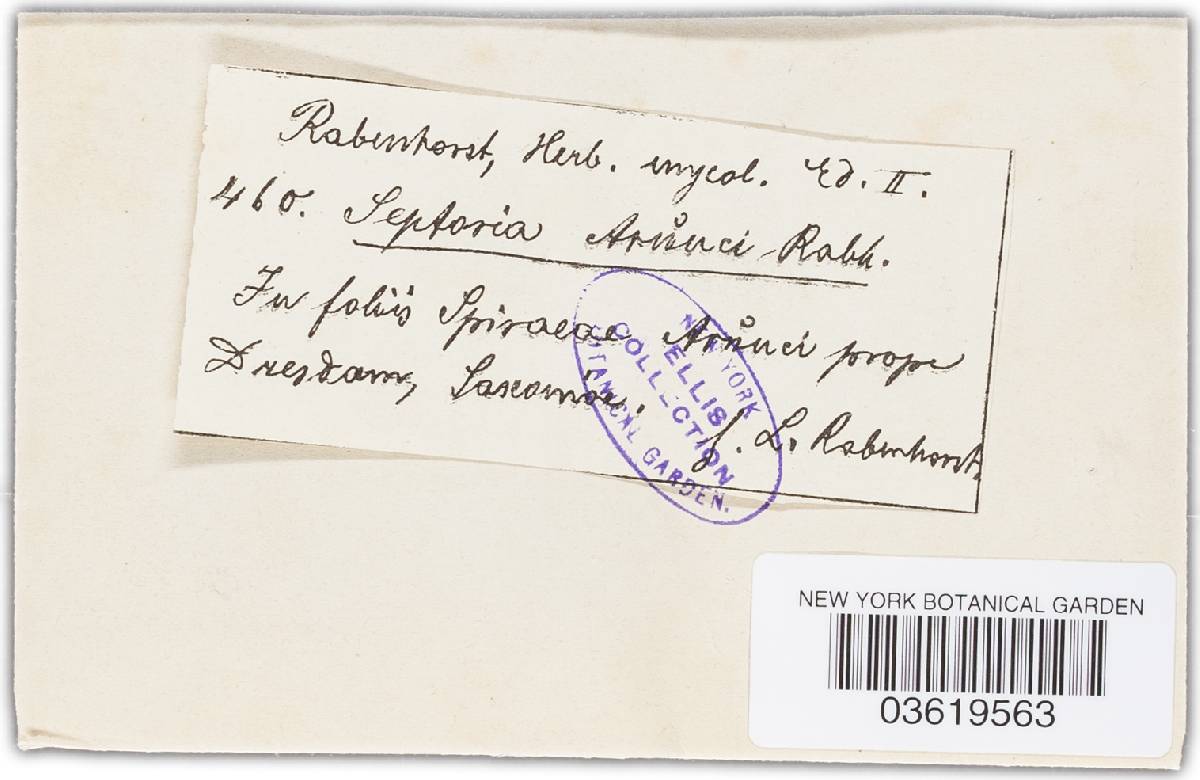 Rabenhorst, Herb. mycol. Ed. II.
460. Septoria Arŭnci Rabh.
In foliis Spiraeae Arŭnci prope
Dresdam, Saxoniae. f. L. Rabenhorst.
NEW YORK
ELLIS
COLLECTION
BOTANICAL GARDEN.
NEW YORK BOTANICAL GARDEN
03619563